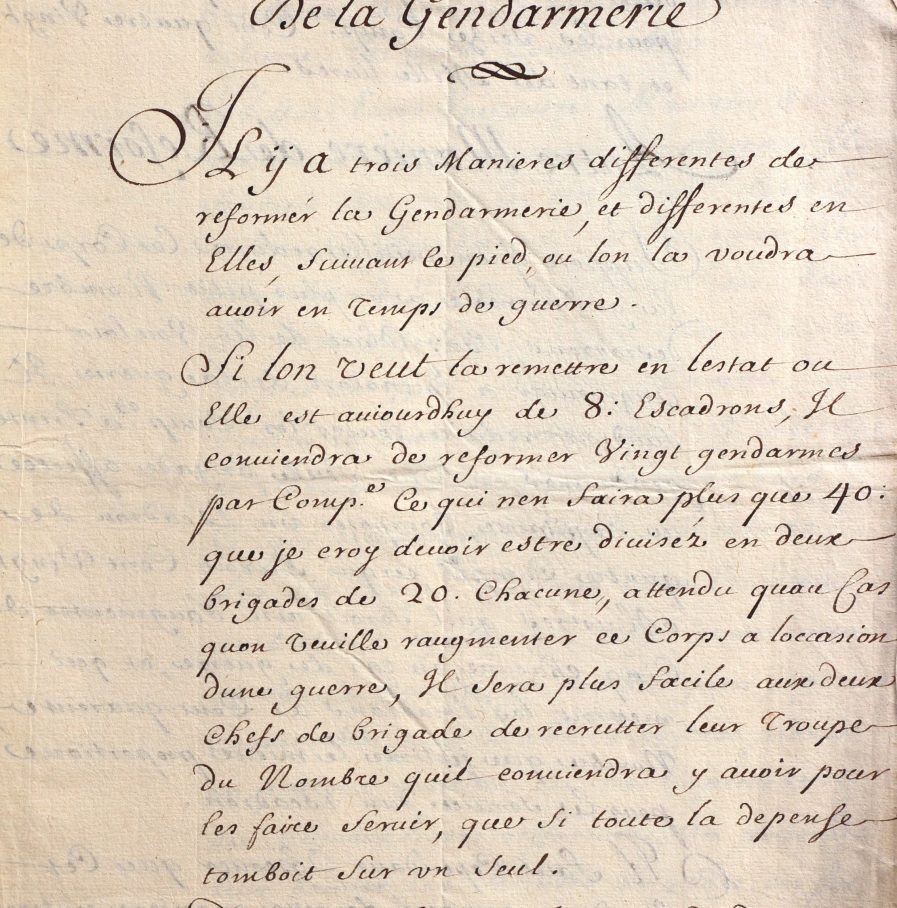 De la Gendarmerie
Il ÿ a trois Manieres differentes de
reformér la Gendarmerie, et differentes en
Elles, suivant le pied, ou lon la voudra
avoir en Temps de guerre.
Si lon veut la remettre en lestat ou
Elle est auiourdhuy de 8: Escadrons, Il
conviendra de reformer Vingt gendarmes
par Comp.e Ce qui nen faira plus que 40:
que je croy devoir estre diviséz en deux
brigades de 20. Chacune, attendu quau Cas
quon Veuille raugmenter ce Corps a loccasion
dune guerre, Il sera plus facile aux deux
Chefs de brigade de recrutter leur Troupe
du Nombre quil conviendra y avoir pour
les faire servir, que si toute la depense
tomboit sur vn seul.